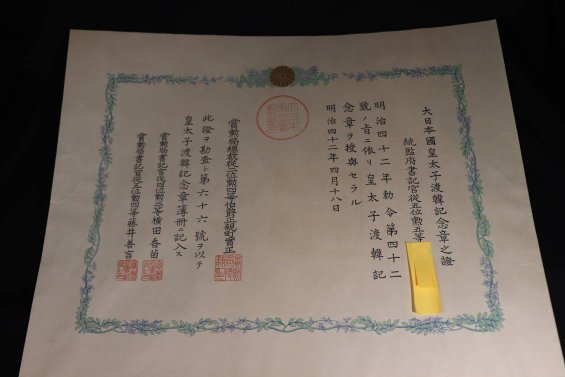 大日本國皇太子渡韓記念章之證
統監府書記官從五位勲五等
明治四十二年勅令第四十二
號ノ旨ニ依リ皇太子渡韓記
念章ヲ授與セラル
明治四十二年四月十八日
賞勲局總裁從二位勲四等伯爵正親町實正
此證ヲ勘査シ第六十六號ヲ以テ
皇太子渡韓記念章簿冊ニ記入ス
賞勲局書記官從四位勲三等横田香苗
賞勲局書記官從五位勲四等藤井善言